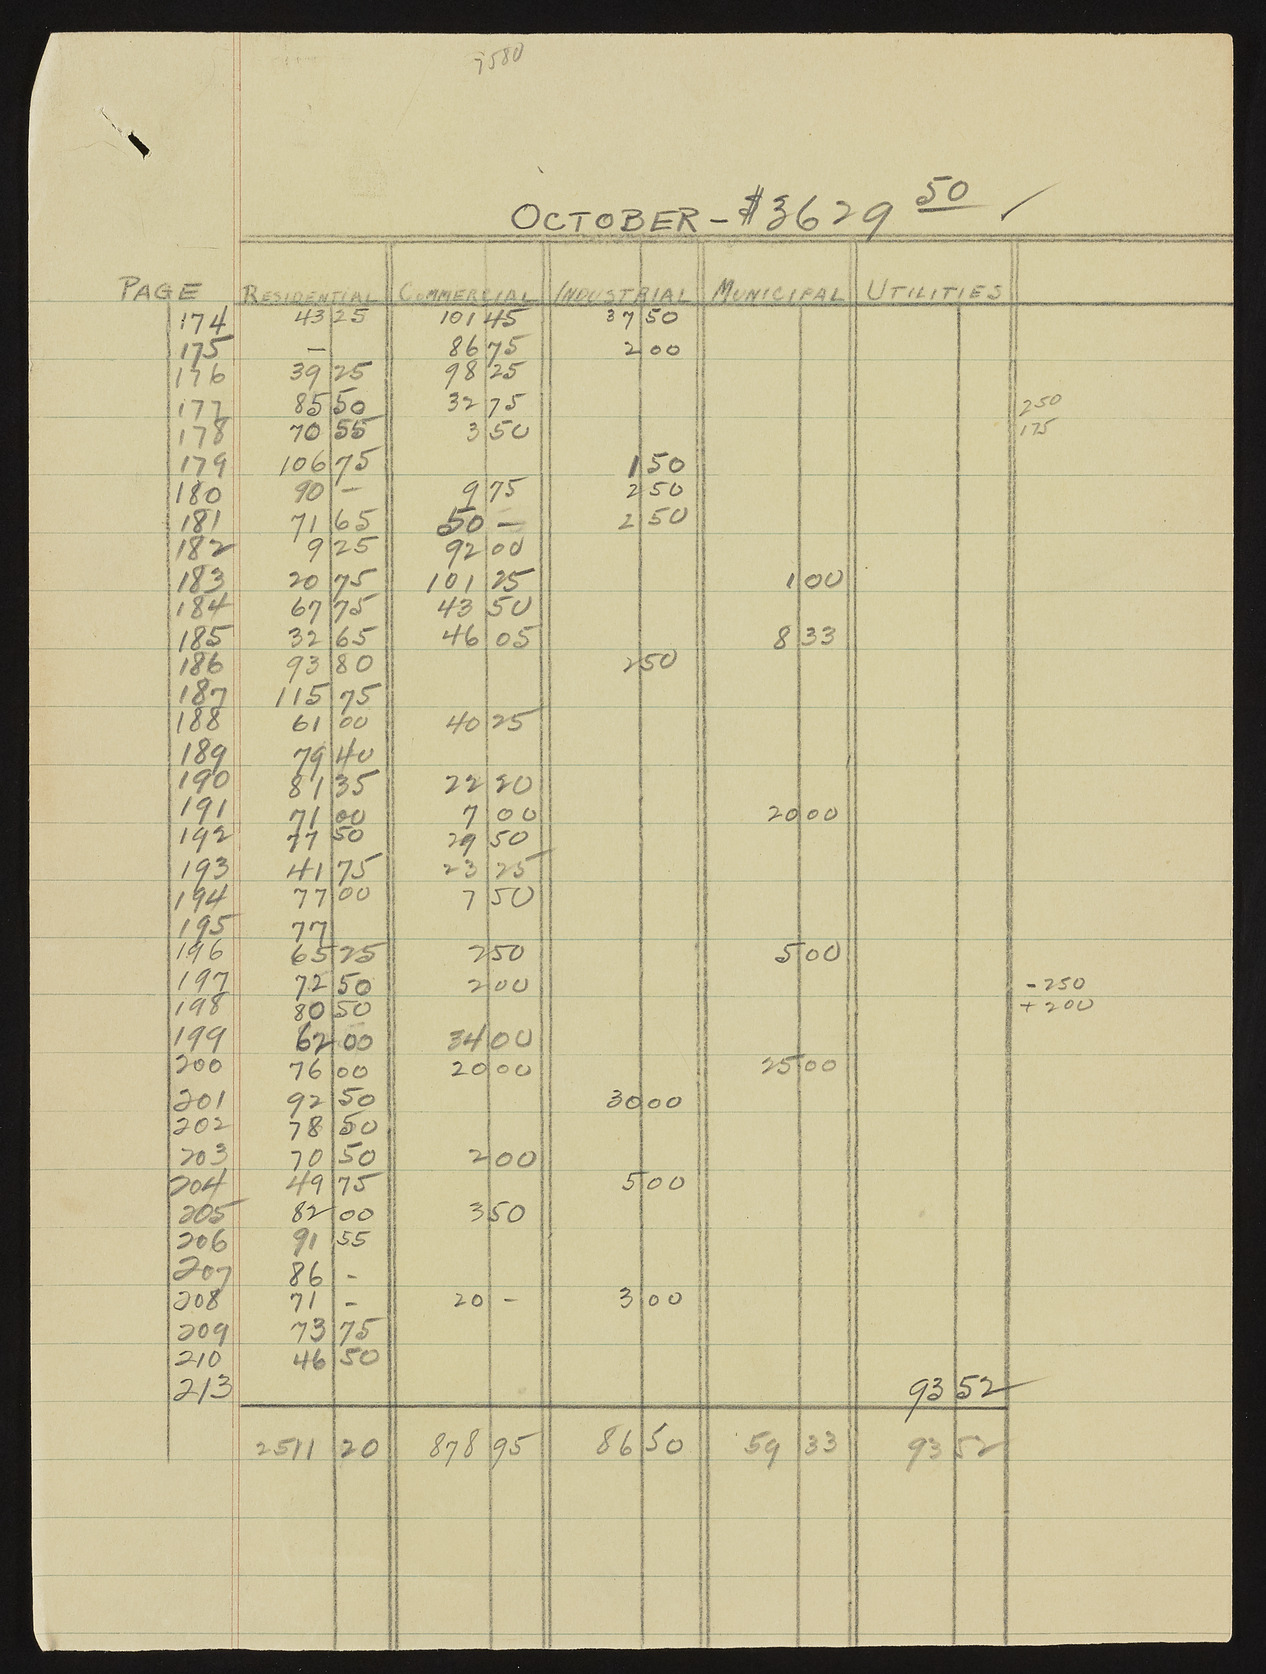 7580
OCTOBER - $3629 50 ✓
PAGE RESIDENTIAL COMMERCIAL INDUSTRIAL MUNICIPAL UTILITIES
174 43 25 101 45 37 50
175 — 86 75 2 00
176 39 25 98 25
177 85 50 32 75 250
178 70 55 3 50 175
179 106 75 1 50
180 90 — 9 75 2 50
181 71 65 50 — 2 50
182 9 25 92 00
183 20 75 101 25 1 00
184 67 75 43 50
185 32 65 46 05 8 33
186 93 80 2 50
187 115 75
188 61 00 40 25
189 79 40
190 81 35 22 20
191 71 00 7 00 20 00
192 77 50 29 50
193 41 75 23 25
194 77 00 7 50
195 77
196 65 25 2 50 5 00
197 72 50 2 00 - 250
198 80 50 + 200
199 62 00 34 00
200 76 00 20 00 25 00
201 92 50 30 00
202 78 50
203 70 50 2 00
204 49 75 5 00
205 82 00 3 50
206 91 55
207 86 -
208 71 - 20 - 3 00
209 73 75
210 46 50
213 93 52
2511 20 878 95 86 50 59 33 93 52